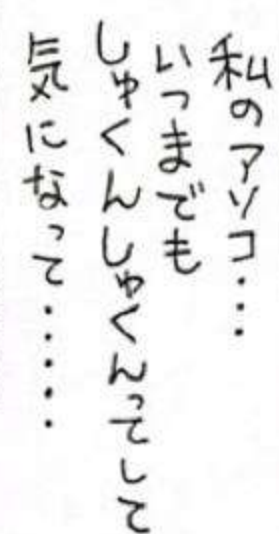 私のアソコ・・・
いつまでも
しゅくんしゅくんってして
気になって・・・・・・